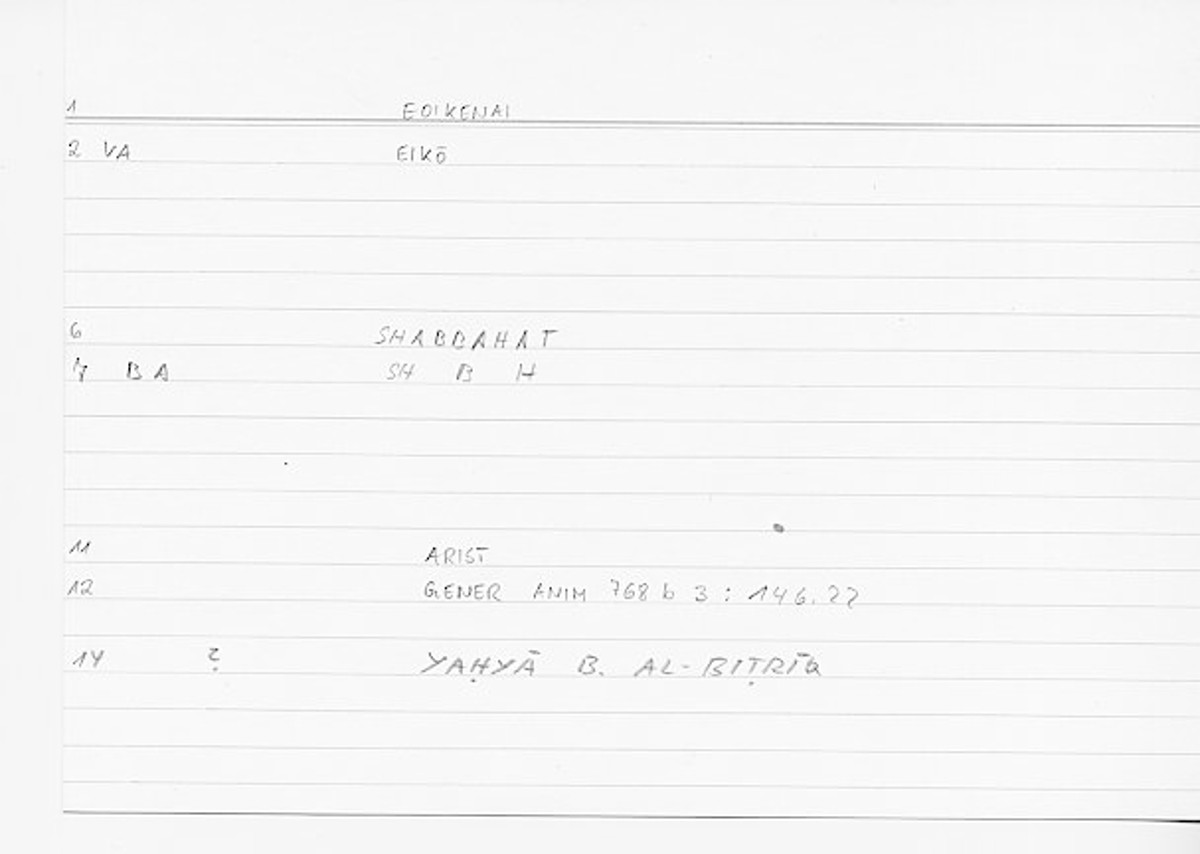 1 EOIKENAI
2 VA EIKŌ
6 SHABBAHAT
7 BA SH B H
11 ARIST
12 GENER ANIM 768 b 3 : 146.22
14 ? YAḤYĀ B. AL-BIṬRĪQ